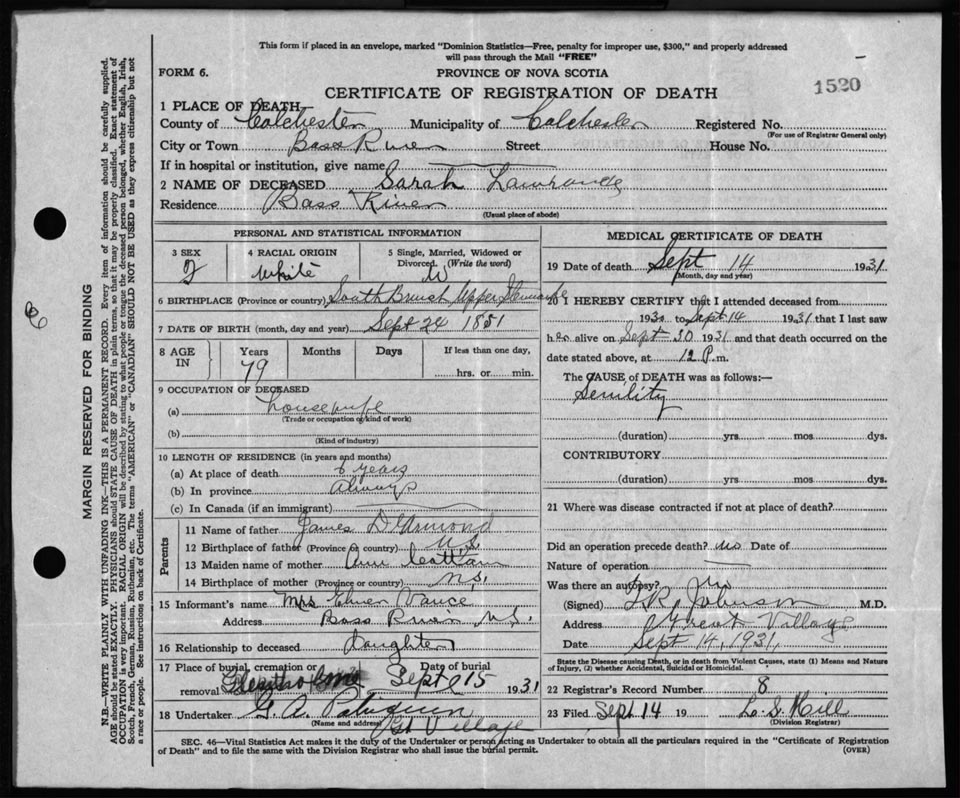 This form if placed in an envelope, marked "Dominion Statistics—Free, penalty for improper use, $300," and properly addressed
will pass through the Mail "FREE"
FORM 6.
PROVINCE OF NOVA SCOTIA
CERTIFICATE OF REGISTRATION OF DEATH
1520
1 PLACE OF DEATH
County of Colchester Municipality of Colchester Registered No.
(For use of Registrar General only)
City or Town Bass River Street House No.
If in hospital or institution, give name
2 NAME OF DECEASED Sarah
Residence Bass River
(Usual place of abode)
PERSONAL AND STATISTICAL INFORMATION
3 SEX
F
4 RACIAL ORIGIN
White
5 Single, Married, Widowed or
Divorced. (Write the word)
W
6 BIRTHPLACE (Province or country) South Branch Upper Stewiacke
7 DATE OF BIRTH (month, day and year) Sept 24 1851
8 AGE IN
Years
79
Months
Days
If less than one day,
hrs. or min.
9 OCCUPATION OF DECEASED
(a) housewife
(Trade or occupation or kind of work)
(b)
(Kind of industry)
10 LENGTH OF RESIDENCE (in years and months)
(a) At place of death 6 years
(b) In province always
(c) In Canada (if an immigrant)
Parents
11 Name of father James
12 Birthplace of father (Province or country) N.S.
13 Maiden name of mother Ann
14 Birthplace of mother (Province or country) N.S.
15 Informant's name Mrs Elmer Vance
Address Bass River N.S.
16 Relationship to deceased Daughter
17 Place of burial, cremation or
removal
Date of burial
Sept 15 1931
18 Undertaker G. A.
(Name and address) Gt Village
MEDICAL CERTIFICATE OF DEATH
19 Date of death Sept 14 1931
(Month, day and year)
20 I HEREBY CERTIFY that I attended deceased from
193 to Sept 14 1931 that I last saw
her alive on Sept 1931 and that death occurred on the
date stated above, at 12 P.m.
The CAUSE of DEATH was as follows:—
Senility
(duration) yrs mos dys.
CONTRIBUTORY
(duration) yrs mos dys.
21 Where was disease contracted if not at place of death?
Did an operation precede death? no Date of
Nature of operation
Was there an autopsy? no
(Signed) Johnson M.D.
Address Great Village
Date Sept 14, 1931
State the Disease causing Death, or in death from Violent Causes, state (1) Means and Nature
of Injury, (2) whether Accidental, Suicidal or Homicidal.
22 Registrar's Record Number 8
23 Filed Sept 14 19 L. S. Hill
(Division Registrar)
SEC. 46—Vital Statistics Act makes it the duty of the Undertaker or person acting as Undertaker to obtain all the particulars required in the "Certificate of Registration
of Death" and to file the same with the Division Registrar who shall issue the burial permit.
(OVER)
MARGIN RESERVED FOR BINDING
N.B.—WRITE PLAINLY WITH UNFADING INK—THIS IS A PERMANENT RECORD. Every item of information should be carefully supplied.
AGE should be stated EXACTLY. PHYSICIANS should STATE CAUSE OF DEATH in plain terms, so that it may be properly classified. Exact statement of
OCCUPATION is very important. RACIAL ORIGIN will be described by stating to what people or tongue the deceased person belonged, whether English, Irish,
Scotch, French, German, Russian, Ruthenian, etc. The terms "AMERICAN" or "CANADIAN" SHOULD NOT BE USED as they express citizenship but not
a race or people. See instructions on back of Certificate.